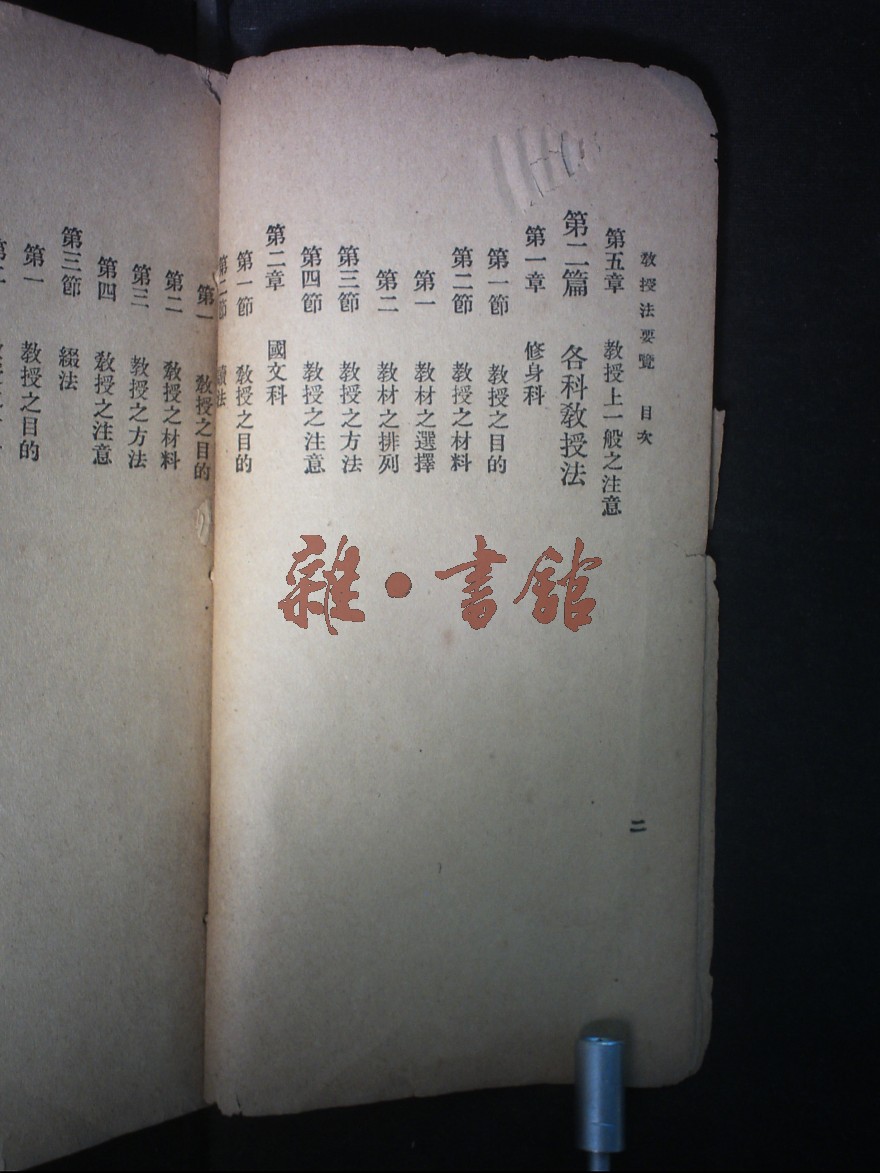 教授法要覽 目次
第五章 教授上一般之注意
第二篇 各科教授法
第一章 修身科
第一節 教授之目的
第二節 教授之材料
第一 教材之選擇
第二 教材之排列
第三節 教授之方法
第四節 教授之注意
第二章 國文科
第一節 教授之目的
第二節 讀法
第一 教授之目的
第二 教授之材料
第三 教授之方法
第四 教授之注意
第三節 綴法
第一 教授之目的
二
雜·書館